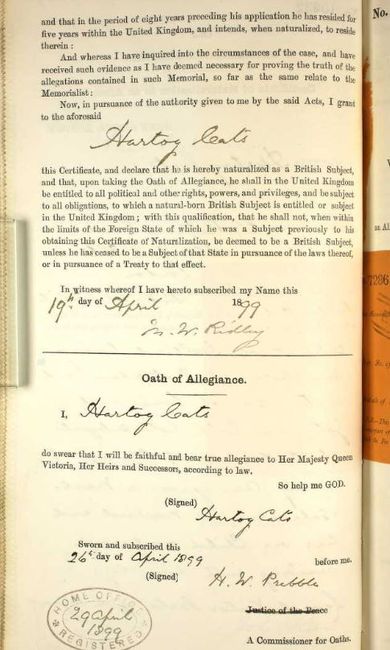 and that in the period of eight years preceding his application he has resided for
five years within the United Kingdom, and intends, when naturalized, to reside
therein :
And whereas I have inquired into the circumstances of the case, and have
received such evidence as I have deemed necessary for proving the truth of the
allegations contained in such Memorial, so far as the same relate to the
Memorialist :
Now, in pursuance of the authority given to me by the said Acts, I grant
to the aforesaid
Hartog Cats
this Certificate, and declare that he is hereby naturalized as a British Subject,
and that, upon taking the Oath of Allegiance, he shall in the United Kingdom
be entitled to all political and other rights, powers, and privileges, and be subject
to all obligations, to which a natural-born British Subject is entitled or subject
in the United Kingdom ; with this qualification, that he shall not, when within
the limits of the Foreign State of which he was a Subject previously to his
obtaining this Certificate of Naturalization, be deemed to be a British Subject,
unless he has ceased to be a Subject of that State in pursuance of the laws thereof,
or in pursuance of a Treaty to that effect.
In witness whereof I have hereto subscribed my Name this
19th day of April 1899
M. W. Ridley
Oath of Allegiance.
I, Hartog Cats
do swear that I will be faithful and bear true allegiance to Her Majesty Queen
Victoria, Her Heirs and Successors, according to law.
So help me GOD.
(Signed)
Hartog Cats
Sworn and subscribed this
26th day of April 1899 before me.
(Signed) H. W. Prebble
Justice of the Peace
A Commissioner for Oaths.
HOME OFFICE
29 April
1899
REGISTERED
No.
7286